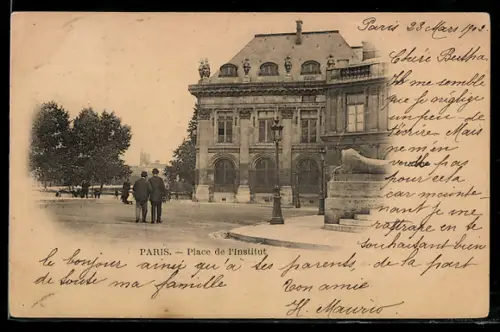 Paris 23 Mars 1903.
Chère Bertha
Il me semble
que je néglige
un peu de
t'écrire. Mais
ne m'en
veuille pas
pour cela
car mainte-
nant je me
rattrape en te
souhaitant bien
PARIS. — Place de l'Institut
le bonjour ainsi qu'à tes parents, de la part
de toute ma famille
Ton amie
H. Maurice